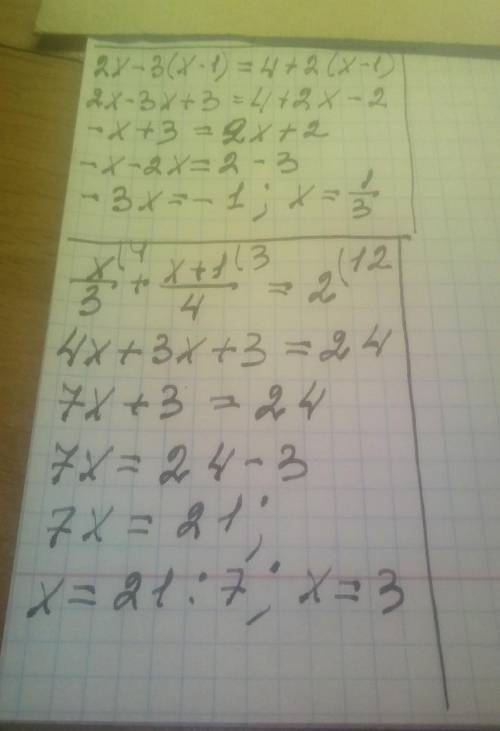 2x-3(x-1)=4+2(x-1)
2x-3x+3=4+2x-2
-x+3=2x+2
-x-2x=2-3
-3x=-1; x=1/3
x/3(4 + x+1/4(3 = 2(12
4x+3x+3=24
7x+3=24
7x=24-3
7x=21;
x=21:7; x=3